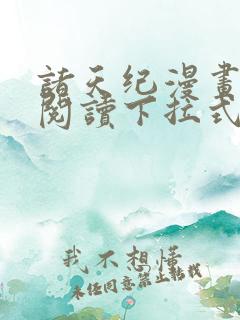 諸天纪漫畫
閱讀下拉式
我不想懂
未经同意禁止転载